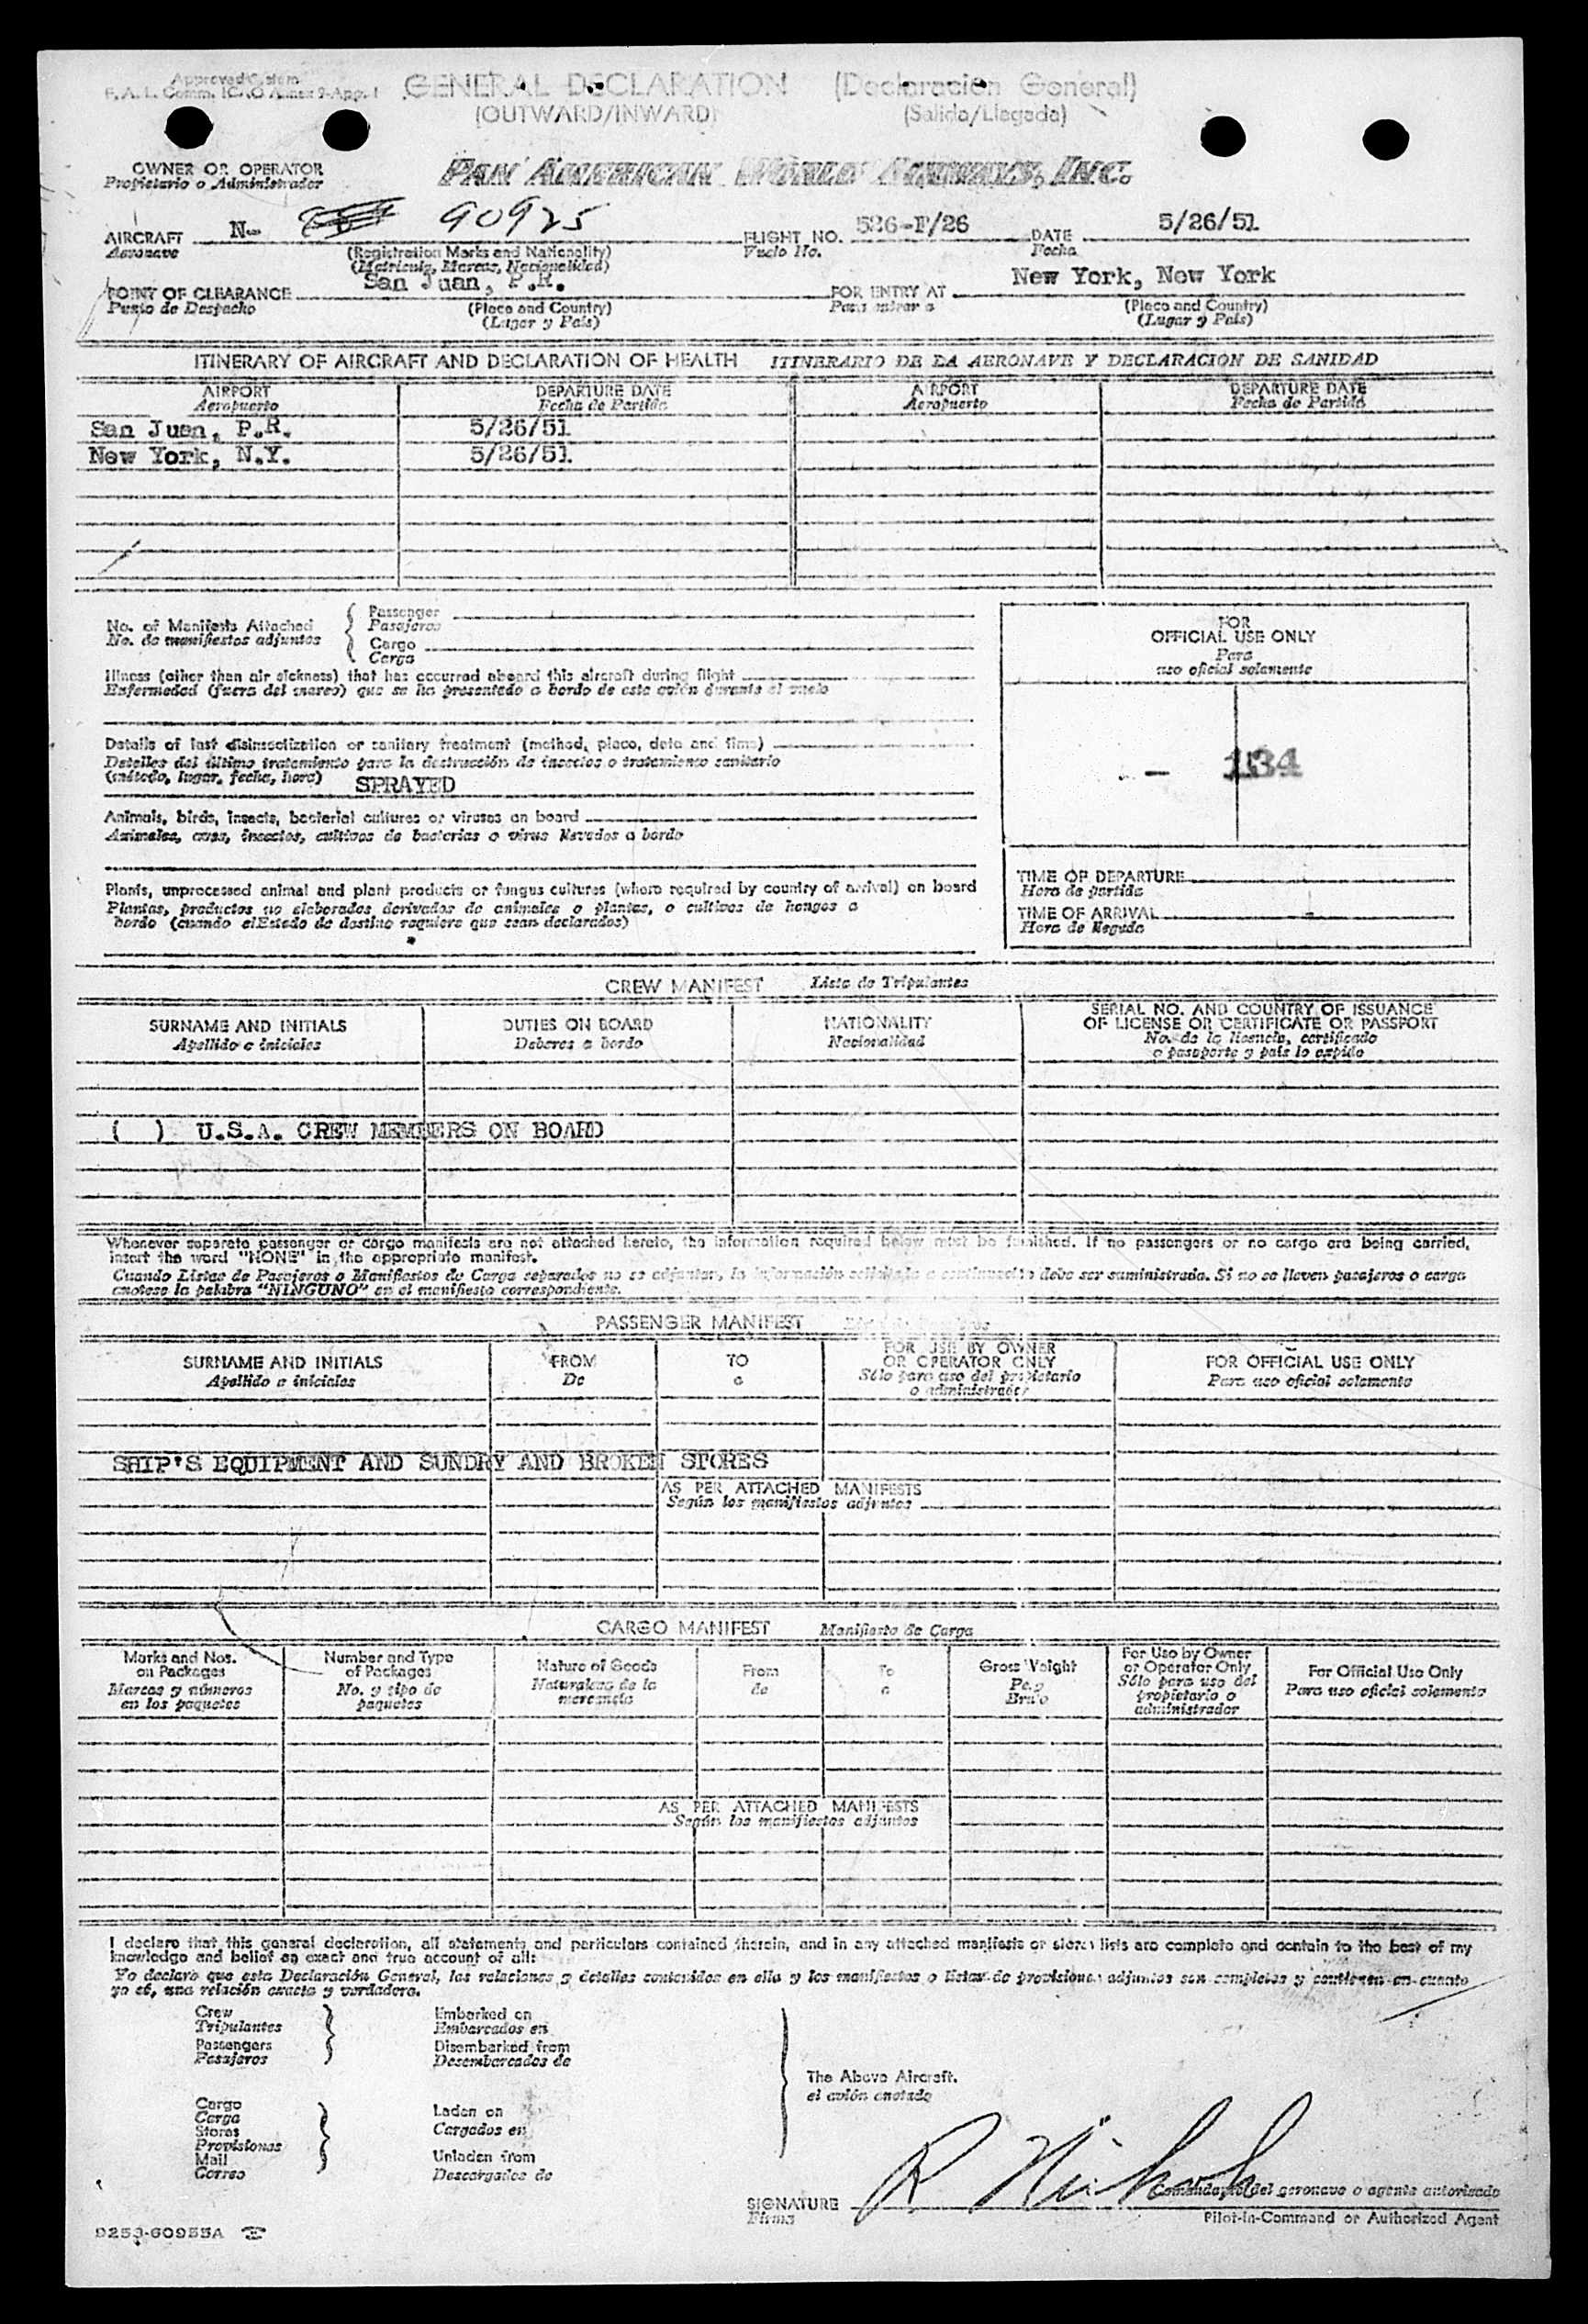 Approved System
F. A. L. Comm. ICAO Annex 9-App. 1
GENERAL DECLARATION (Declaración General)
(OUTWARD/INWARD) (Salida/Llegada)
OWNER OR OPERATOR
Propietario o Administrador
PAN AMERICAN WORLD AIRWAYS, INC.
AIRCRAFT N- 90925 FLIGHT NO. 526-F/26 DATE 5/26/51
Aeronave (Registration Marks and Nationality) Vuelo No. Fecha
(Matricula, Marcas, Nacionalidad)
POINT OF CLEARANCE San Juan, P.R. FOR ENTRY AT New York, New York
Punto de Despacho (Place and Country) Para entrar a (Place and Country)
(Lugar y País) (Lugar y País)
ITINERARY OF AIRCRAFT AND DECLARATION OF HEALTH ITINERARIO DE LA AERONAVE Y DECLARACION DE SANIDAD
AIRPORT DEPARTURE DATE AIRPORT DEPARTURE DATE
Aeropuerto Fecha de Partida Aeropuerto Fecha de Partida
San Juan, P.R. 5/26/51
New York, N.Y. 5/26/51
No. of Manifests Attached
No. de manifiestos adjuntos
Passenger
Pasajeros
Cargo
Carga
Illness (other than air sickness) that has occurred aboard this aircraft during flight
Enfermedad (fuera del mareo) que se ha presentado a bordo de este avión durante el vuelo
Details of last disinsectization or sanitary treatment (method, place, date and time)
Detalles del último tratamiento para la destrucción de insectos o tratamiento sanitario
(método, lugar, fecha, hora) SPRAYED
Animals, birds, insects, bacterial cultures or viruses on board
Animales, aves, insectos, cultivos de bacterias o virus llevados a bordo
Plants, unprocessed animal and plant products or fungus cultures (where required by country of arrival) on board
Plantas, productos no elaborados derivados de animales o plantas, o cultivos de hongos a
bordo (cuando el Estado de destino requiere que sean declarados)
FOR
OFFICIAL USE ONLY
Para
uso oficial solamente
- 134
TIME OF DEPARTURE
Hora de partida
TIME OF ARRIVAL
Hora de llegada
CREW MANIFEST Lista de Tripulantes
SURNAME AND INITIALS DUTIES ON BOARD NATIONALITY SERIAL NO. AND COUNTRY OF ISSUANCE
OF LICENSE OR CERTIFICATE OR PASSPORT
Apellido e iniciales Deberes a bordo Nacionalidad No. de la licencia, certificado
o pasaporte y país lo expido
( ) U.S.A. CREW MEMBERS ON BOARD
Whenever separate passenger or cargo manifests are not attached hereto, the information required below must be furnished. If no passengers or no cargo are being carried,
insert the word "NONE" in the appropriate manifest.
Cuando Listas de Pasajeros o Manifiestos de Carga separados no se adjuntan, la información solicitada a continuación debe ser suministrada. Si no se llevan pasajeros o carga
anotese la palabra "NINGUNO" en el manifiesto correspondiente.
PASSENGER MANIFEST
SURNAME AND INITIALS FROM TO FOR USE BY OWNER
OR OPERATOR ONLY FOR OFFICIAL USE ONLY
Apellido e iniciales De a Sólo para uso del propietario
o administrador Para uso oficial solamente
SHIP'S EQUIPMENT AND SUNDRY AND BROKEN STORES
AS PER ATTACHED MANIFESTS
Según los manifiestos adjuntos
CARGO MANIFEST Manifiesto de Carga
Marks and Nos.
on Packages
Marcas y números
en los paquetes
Number and Type
of Packages
No. y tipo de
paquetes
Nature of Goods
Naturaleza de la
mercancía
From
de
To
a
Gross Weight
Peso
Bruto
For Use by Owner
or Operator Only
Sólo para uso del
propietario o
administrador
For Official Use Only
Para uso oficial solamente
AS PER ATTACHED MANIFESTS
Según los manifiestos adjuntos
I declare that this general declaration, all statements and particulars contained therein, and in any attached manifests or stores lists are complete and contain to the best of my
knowledge and belief an exact and true account of all:
Yo declaro que esta Declaración General, las relaciones y detalles contenidos en ella y los manifiestos o listas de provisiones adjuntos son completos y contienen en cuanto
yo sé, una relación exacta y verdadera.
Crew
Tripulantes
Passengers
Pasajeros
Embarked on
Embarcados en
Disembarked from
Desembarcados de
The Above Aircraft.
el avión anotado
Cargo
Carga
Stores
Provisiones
Mail
Correo
Laden on
Cargados en
Unladen from
Descargados de
SIGNATURE R Nichols
Firma
Comandante del aeronave o agente autorizado
Pilot-in-Command or Authorized Agent
9253-60955A